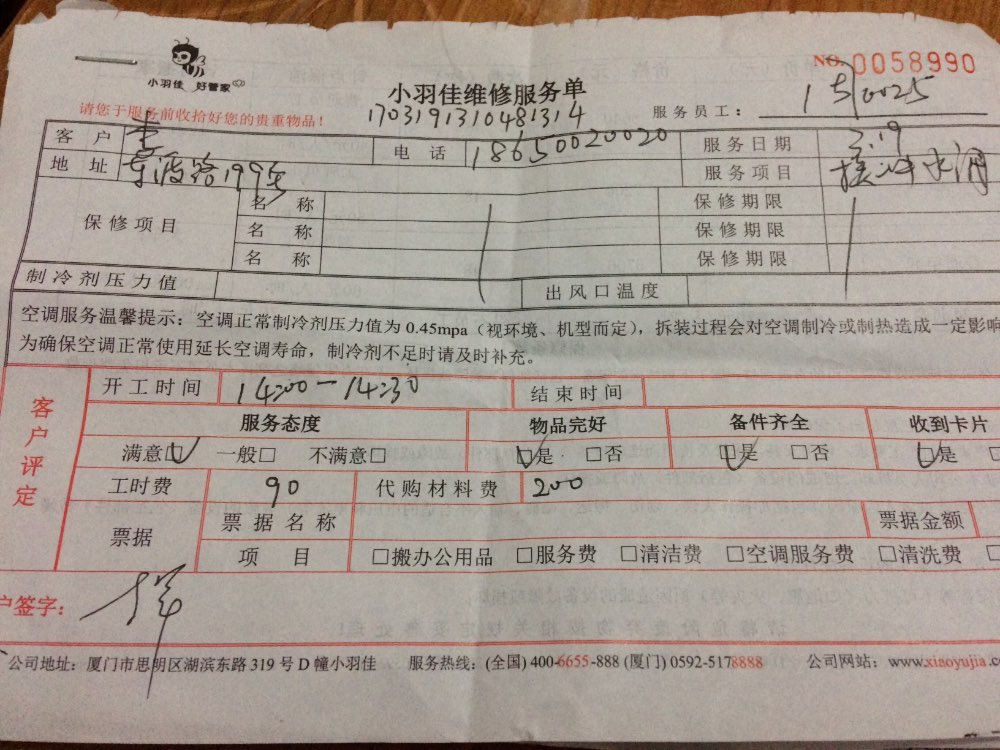 小羽佳 好管家
NO. 0058990
小羽佳维修服务单
请您于服务前收拾好您的贵重物品！
1703191310481314
服务员工：
客户 李 电话 18650020020 服务日期 3.19
地址 199 服务项目 换 水
保修项目 名称 保修期限
名称 保修期限
名称 保修期限
制冷剂压力值 出风口温度
空调服务温馨提示：空调正常制冷剂压力值为 0.45mpa（视环境、机型而定），拆装过程会对空调制冷或制热造成一定影响
为确保空调正常使用延长空调寿命，制冷剂不足时请及时补充。
客户评定
开工时间 14:00－14:30 结束时间
服务态度 物品完好 备件齐全 收到卡片
满意☑ 一般□ 不满意□ ☑是 □否 ☑是 □否 ☑是
工时费 90 代购材料费 200
票据 票据名称 票据金额
项目 □搬办公用品 □服务费 □清洁费 □空调服务费 □清洗费
户签字：
公司地址：厦门市思明区湖滨东路 319 号 D 幢小羽佳 服务热线：(全国) 400-6655-888 (厦门) 0592-5178888 公司网站：www.xiaoyujia.co